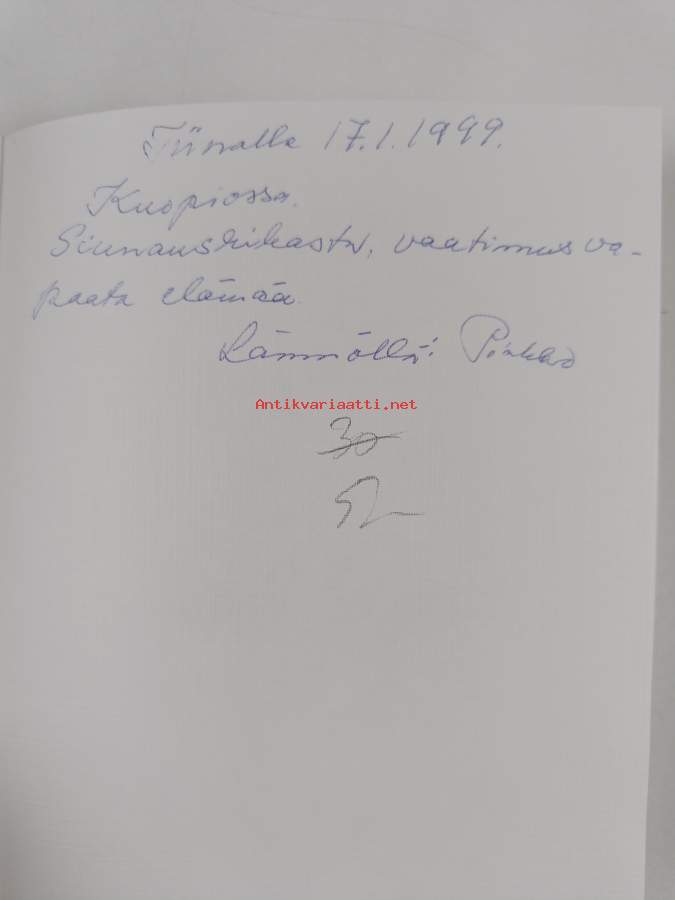 Tiinalle 17.1.1999.
Kuopiossa.
Siunausrikasta, vaatimusva-
paata elämää.
Lämmöllä: Pirkko
Antikvariaatti.net
30